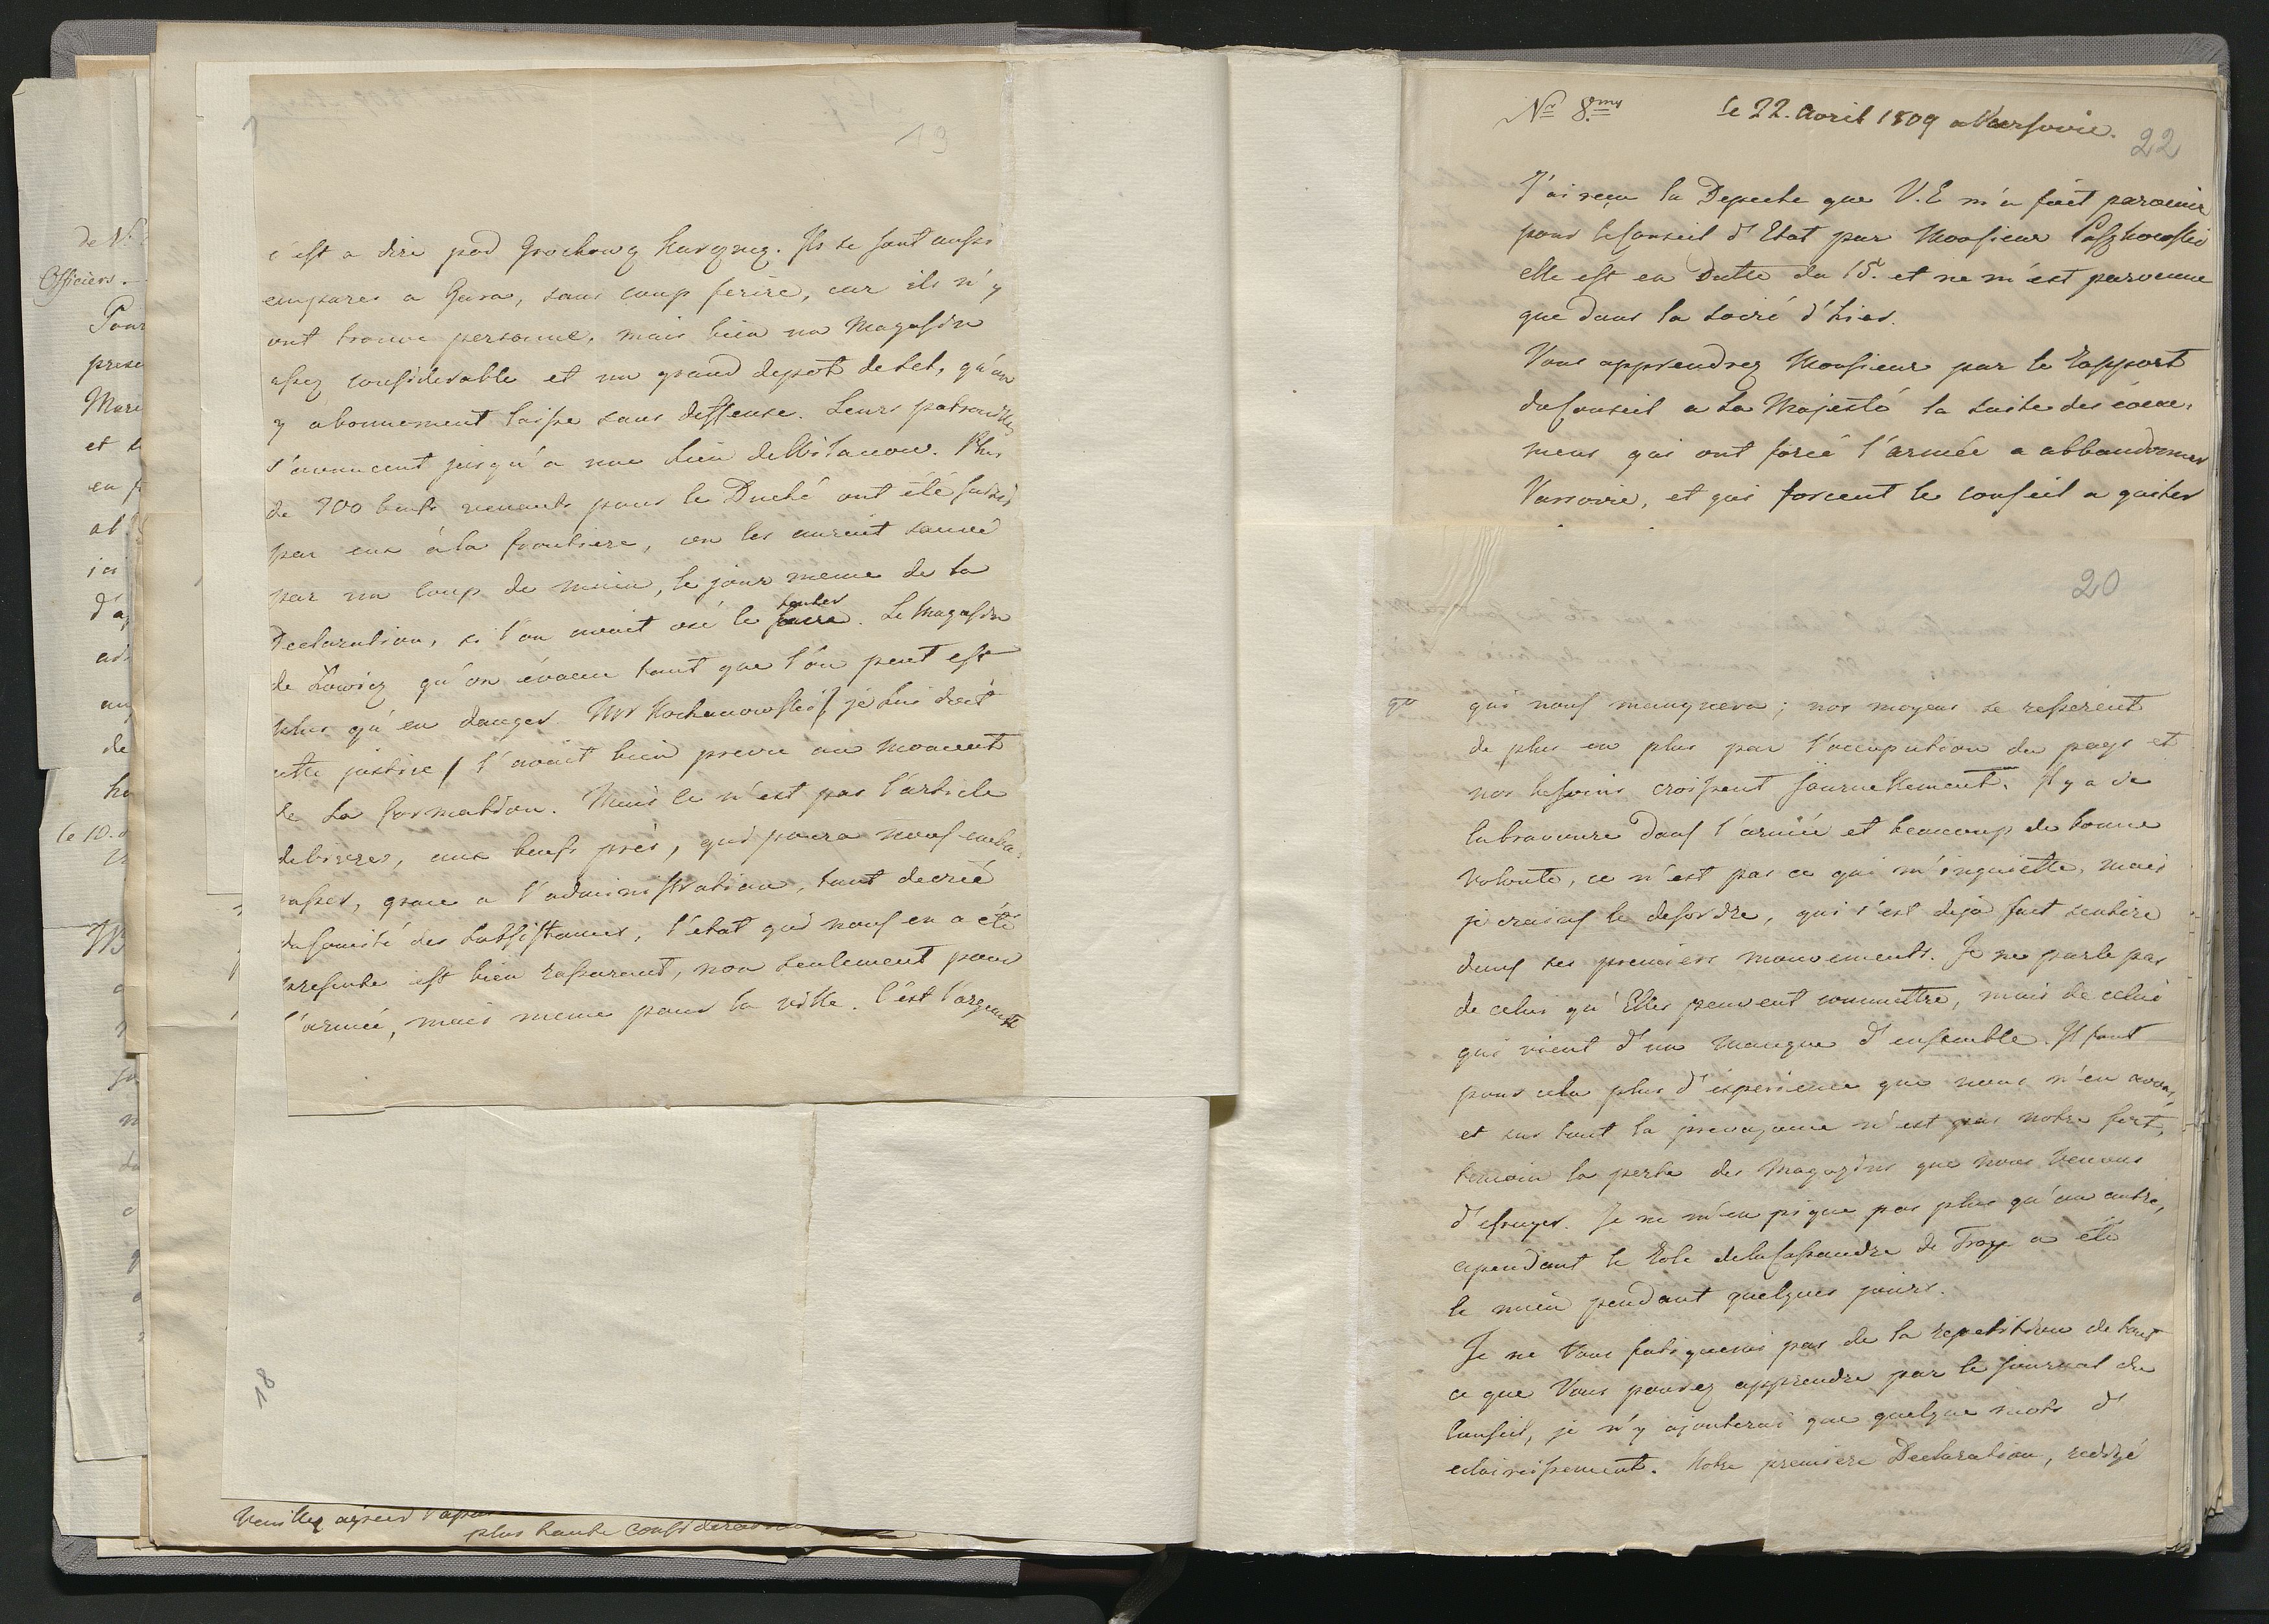 de V.
Officiers.
Pour
prese
Mari
et
en
at
ici
d'a
adr
de
le 10.
19
c'est a dire pod Grochową karczmą. Ils se sont aussi
empares a Gura, sans coup ferire, car ils n'y
ont trouve personne, mais bien un Magasin
assez considerable et un grand depot de sel, qu'on
y abonnement laisse sans deffense. Leurs patrouilles
s'avancent jusqu'a une Lieu de Wilanow. Plus
de 700 beufs venants pour le Duché ont été saisis
par eux à la frontiere, on les auroit sauvé
par un coup de main, le jour meme de la
Declaration, si l'on avoit osé le tenter faire. Le Magasin
de Łowicz qu'on évacue tant que l'on peut est
plus qu'en danger. Mr Kochanowski / je lui doit
cette justice / l'avoit bien prevu au moment
de sa formation. Mais ce n'est pas l'article
de vivres, aux beufs près, qui poura nous emba-
rasser, grace a l'administration, tant decrié
du comité des subsistances, l'etat qui nous en a été
presente est bien rassurant, non seulement pour
l'armée, mais meme pour la ville. C'est l'argent
18
Veuillez agreer
plus haute consideration
Nr 8.me le 22. Avril 1809 a Varsovie.
22
J'ai reçu la Depeche que V.E m'a fait parvenir
pour le Conseil d'Etat par Monsieur Paszkowski
elle est en Datte du 15. et ne m'est parvenue
que dans la soiré d'hier.
Vous apprendrez Monsieur par le Rapport
du Conseil a Sa Majesté la suite des évene-
mens qui ont forcé l'armée a abbandonner
Varsovie, et qui forcent le conseil a quiter
20
qui nous manquera; nos moyens se resserent
de plus en plus par l'occupation du pays et
nos besoins croissent journellement. Il y a de
la bravoure dans l'armée et beaucoup de bonne
volonte, ce n'est pas ce qui m'inquiette, mais
je crains le desordre, qui s'est deja fait sentire
dans ses premiers mouvements. Je ne parle pas
de celui qu'Elles peuvent commettre, mais de celui
qui vient d'un manque d'ensemble. Il faut
pour cela plus d'experience que nous n'en avons,
et sur tout la prevoyance n'est pas notre fort,
temoin la perte des Magazins que nous venons
d'essuyer. Je ne m'en pique pas plus qu'un autre,
cependant le Role de la Cassandre de Troye a été
le mien pendant quelques jours.
Je ne Vous fatiguerai pas de la repetition de tout
ce que Vous pouvez apprendre par le journal du
Conseil, je n'y ajouterai que quelque mots d'
eclaircissement. Notre premiere Declaration, redigé